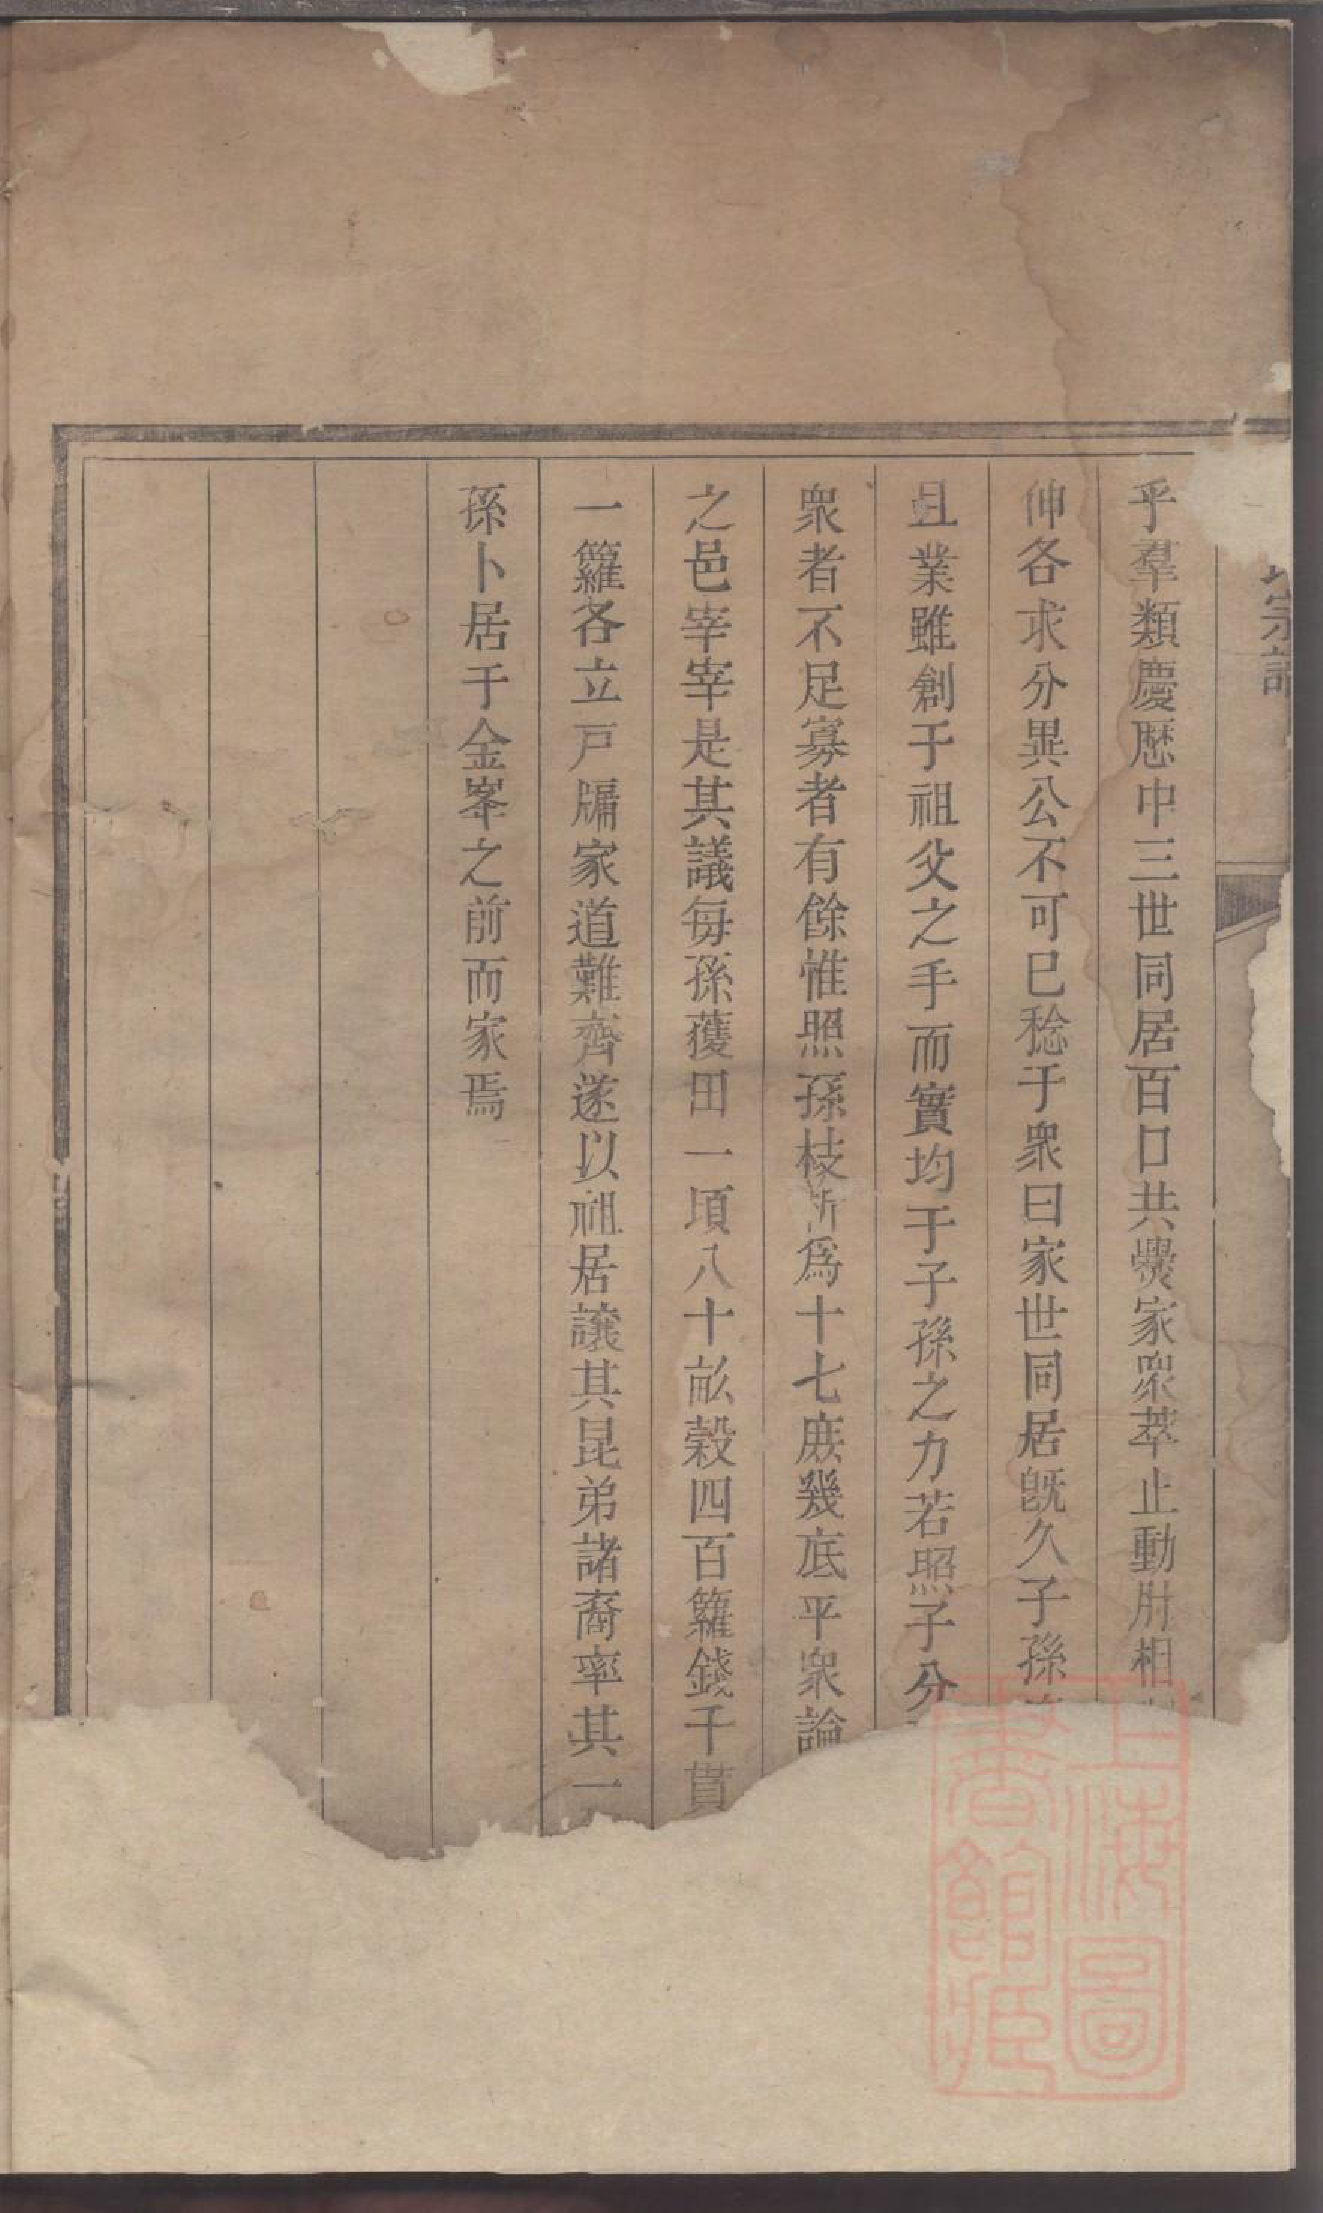 宗譜
乎羣類慶歷中三世同居百口共爨家衆萃止動肘相
伸各求分異公不可已稔于衆曰家世同居旣久子孫
且業雖創于祖父之手而實均于子孫之力若照子分
衆者不足寡者有餘惟照孫枝斯爲十七庶幾底平衆論
之邑宰宰是其議每孫獲田一項八十畝穀四百籮錢千貫
一籮各立戸牖家道難齊遂以祖居讓其昆弟諸裔率其一
孫卜居于金峯之前而家焉
上海圖書館藏